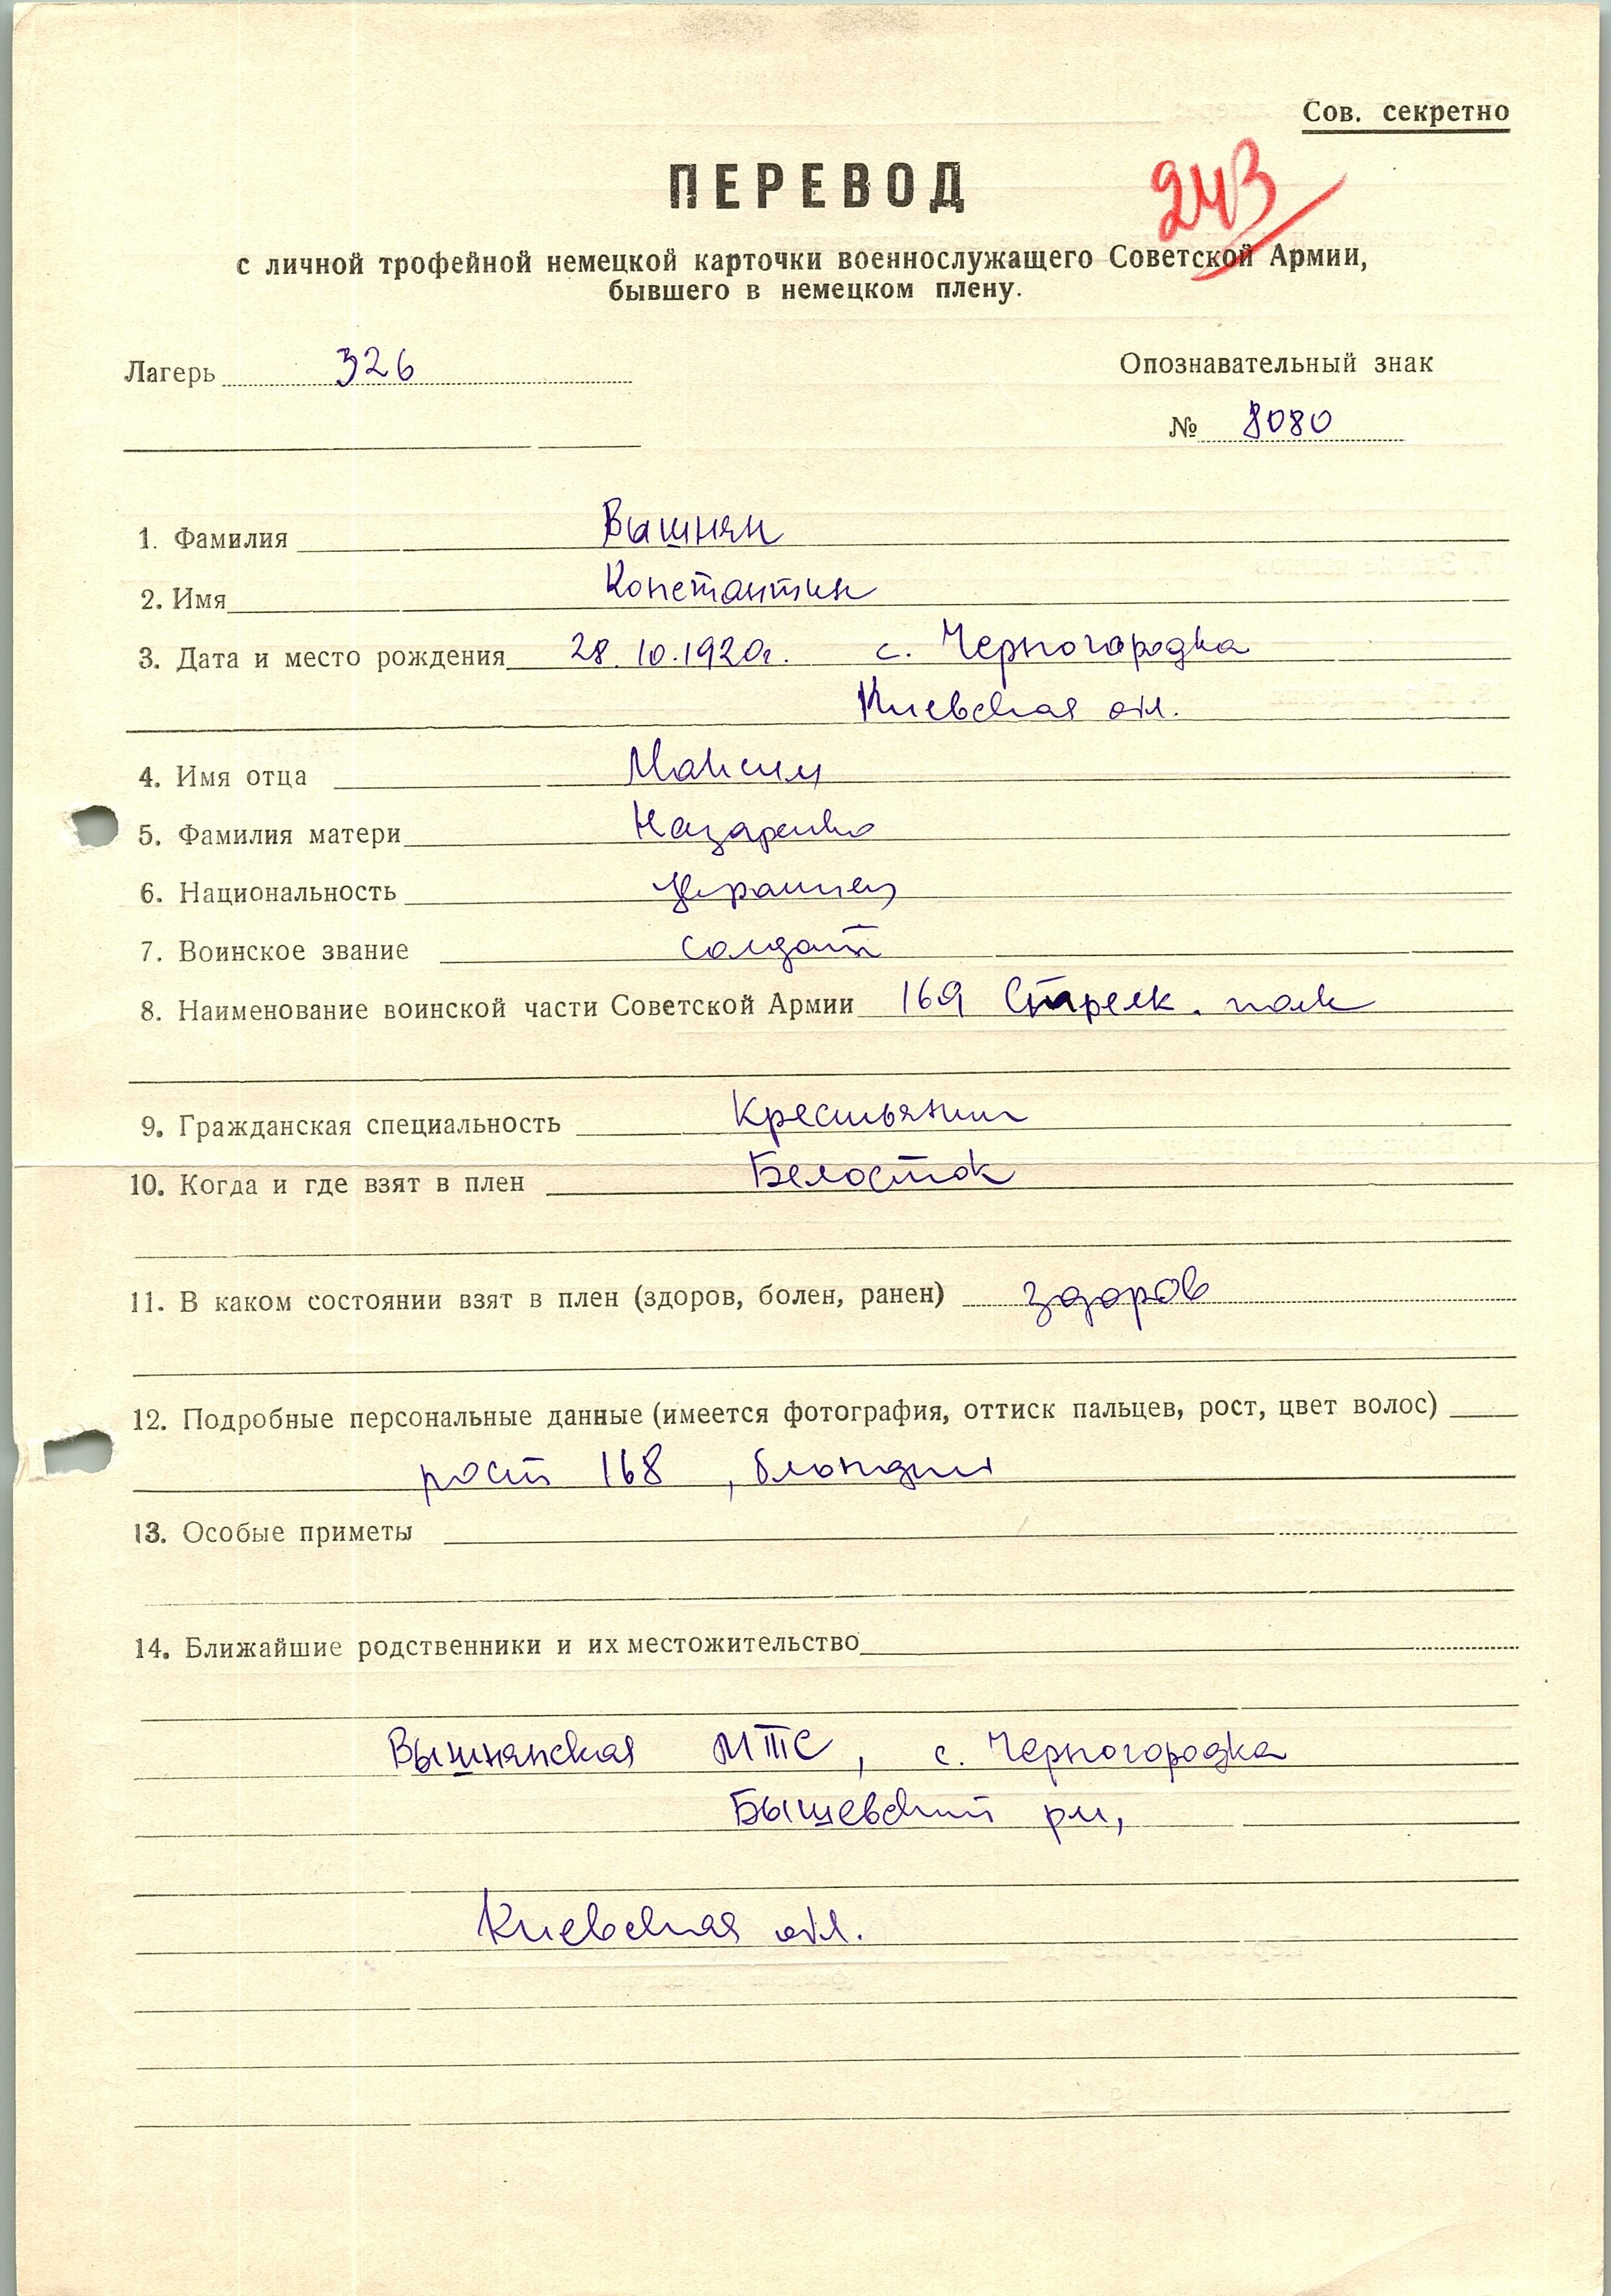 Сов. секретно
ПЕРЕВОД
243
с личной трофейной немецкой карточки военнослужащего Советской Армии,
бывшего в немецком плену.
Лагерь 326 Опознавательный знак
№ 8080
1. Фамилия Вышнян
2. Имя Константин
3. Дата и место рождения 28.10.1920г. с. Черногородка
Киевская обл.
4. Имя отца Максим
5. Фамилия матери Назаренко
6. Национальность украинец
7. Воинское звание солдат
8. Наименование воинской части Советской Армии 169 Стрелк. полк
9. Гражданская специальность Крестьянин
10. Когда и где взят в плен Белосток
11. В каком состоянии взят в плен (здоров, болен, ранен) здоров
12. Подробные персональные данные (имеется фотография, оттиск пальцев, рост, цвет волос)
рост 168, блондин
13. Особые приметы
14. Ближайшие родственники и их местожительство
Вышнянская МТС, с. Черногородка
Бышевский рн,
Киевская обл.